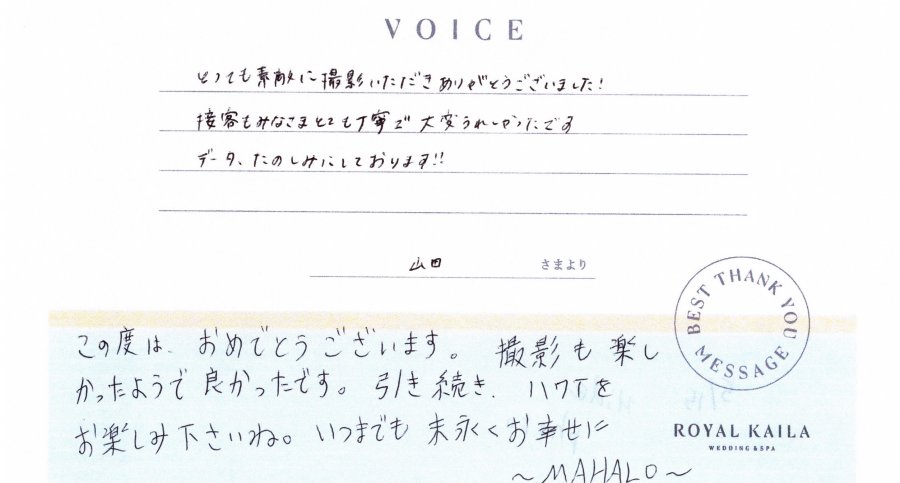 VOICE
とっても素敵に撮影いただきありがとうございました！
接客もみなさまとても丁寧で大変うれしかったです
データ、たのしみにしております!!
山田 さまより
BEST THANK YOU MESSAGE
この度は、おめでとうございます。 撮影も楽し
かったようで良かったです。引き続き、ハワイを
お楽しみ下さいね。いつまでも末永くお幸せに
～MAHALO～
ROYAL KAILA
WEDDING & SPA